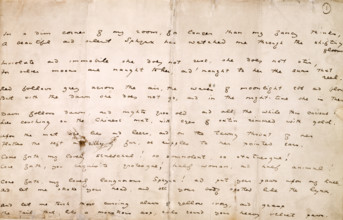 1
In a dim corner of my room, for longer than my fancy thinks,
A beautiful and silent Sphynx has watched me through the shifting
gloom.
Inviolate and immobile she does not rise, she does not stir,
For silver moons are naught to her, and naught to her the suns that reel.
Red follows grey across the air, the waves of moonlight ebb and flow
But with the dawn she does not go, and in the night-time she is there
Dawn follows dawn and nights grow old, and all the while this curious cat
Lies couching on the Chinese mat, with eyes of satin rimmed with gold.
Upon the mat she lies and leers, and on the tawny throat of her
Flutters the soft and silky fur or ripples to her pointed ears.
Come forth my lovely seneschal, so somnolent, so statuesque!
Come forth you exquisite grotesque, half woman and half animal!
Come forth my lovely languorous Sphynx, and put your paws upon my knee
And let me stroke your head and see your body spotted like the lynx
And let me touch those curving claws of yellow ivory, and grasp
The tail that like a monstrous asp coils round your heavy velvet paws.